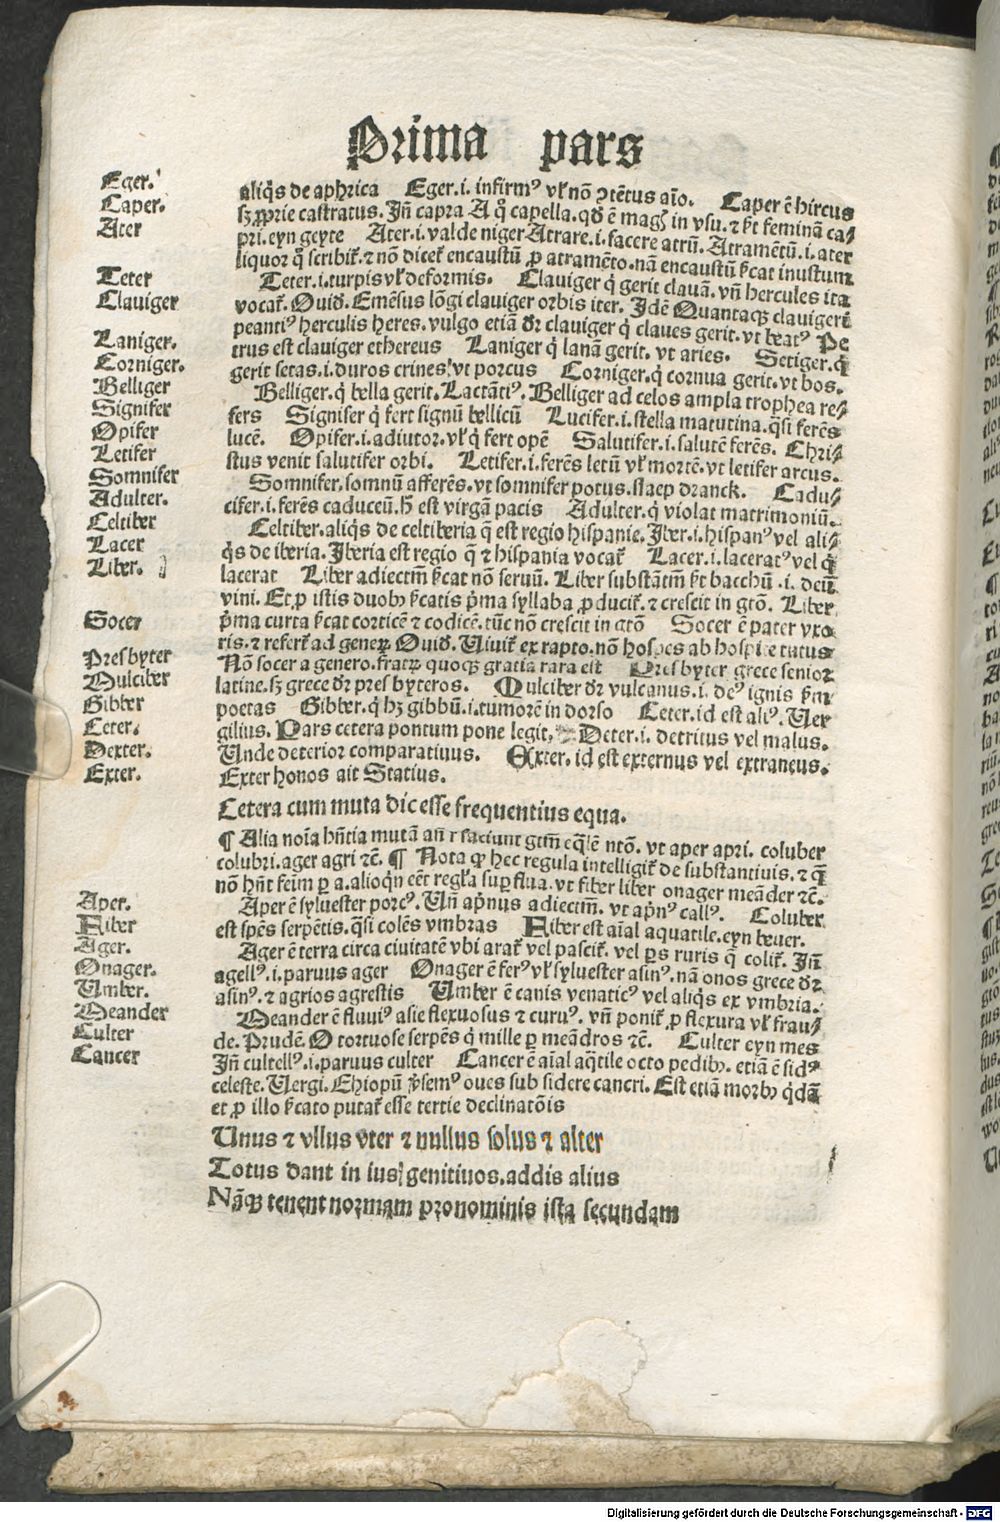 Prima pars
Eger.
Caper.
Ater
Teter
Clauiger
Laniger.
Corniger.
Belliger
Signifer
Opifer
Letifer
Somnifer
Adulter.
Celtiber
Lacer
Liber.
Socer
Presbyter
Mulciber
Gibber
Ceter.
Dexter.
Exter.
aliq̇s de aphrica Eger.i. infirmꝰ vl̓ nō ↄtētus aīo. Caper ē hircus
sꝫ ꝓprie castratus. Jn̄ capra A q̊ capella. qd̓ ē magꝯ in vsu. ⁊ s̓t feminā ca⸗
pri. eyn geyte Ater.i. valde niger Atrare.i. facere atrū. Atramētū.i. ater
liquor q̊ scribit̓. ⁊ nō dicet̓ encaustū ꝓ atramēto. nā encaustū s̓cat inustum
Teter.i. turpis vl̓ deformis. Clauiger q̇ gerit clauā. vn̄ hercules ita
vocat̓. Ouid̓. Emēsus lōgi clauiger orbis iter. Jdē Quantaqꝫ clauigeri
peantiꝰ herculis heres. vulgo etiā dr̄ clauiger q̇ claues gerit. vt beatꝰ Pe
trus est clauiger ethereus Laniger q̇ lanā gerit. vt aries. Setiger. q̇
gerit setas.i. duros crines vt porcus Corniger. q̇ cornua gerit. vt bos.
Belliger. q̇ bella gerit. Lactātiꝰ. Belliger ad celos ampla trophea re⸗
fers Signifer q̇ fert signū bellicū Lucifer.i. stella matutina. q̄si ferēs
lucē. Opifer.i. adiutor. vl̓ q̇ fert opē Salutifer.i. salutē ferēs. Chri⸗
stus venit salutifer orbi. Letifer.i. ferēs letū vl̓ mortē. vt letifer arcus.
Somnifer. somnū afferēs. vt somnifer potus. slaep dranck. Cadu⸗
cifer.i. ferēs caduceū. h̄ est virgā pacis Adulter. q̇ violat matrimoniū.
Celtiber. aliq̇s de celtiberia q̄ est regio hispanie. Jber.i. hispanꝰ vel ali⸗
q̇s de iberia. Jberia est regio q̄ ⁊ hispania vocat̓ Lacer.i. laceratꝰ vel q̇
lacerat Liber adiectm̄ s̓cat nō seruū. Liber substātm̄ s̓t bacchū .i. deū
vini. Et ꝓ istis duobꝫ s̓catis p̓ma syllaba ꝓducit̓. ⁊ crescit in gtō. Liber
p̓ma curta s̓cat corticē ⁊ codicē. tūc nō crescit in gtō Socer ē pater vxo
ris. ⁊ refert̓ ad generꝫ Ouid̓. Uiuit̓ ex rapto. nō hospes ab hospite tutus
Nō socer a genero. fratrꝫ quoqꝫ gratia rara est Presbyter grece senior
latine. sꝫ grece dr̄ presbyteros. Mulciber dr̄ vulcanus.i. deꝰ ignis s̓m
poetas Gibber. q̇ hꝫ gibbū.i. tumorē in dorso Ceter. id est aliꝰ. Uer
gilius. Pars cetera pontum pone legit. Deter.i. detritus vel malus.
Unde deterior comparatiuus. Exter. id est externus vel extraneus.
Exter honos ait Statius.
Cetera cum muta dic esse frequentius equa.
¶ Alia noīa hn̄tia mutā an̄ r faciunt gtm̄ eq̄lē ntō. vt aper apri. coluber
colubri. ager agri ⁊c̄. ¶ Nota ꝙ hec regula intelligit̓ de substantiuis. ⁊ q̄
nō hn̄t feīm ꝑ a. alioqn̓ eēt regl̓a suꝑflua. vt fiber liber onager meāder ⁊c̄.
Aper.
Fiber
Ager.
Onager.
Umber.
Meander
Culter
Cancer
Aper ē syluester porcꝰ. Un̄ apr̓nus adiectm̄. vt apr̓nꝰ callꝰ. Coluber
est spēs serpētis. q̄si colēs vmbras Fiber est aīal aquatile. eyn beuer.
Ager ē terra circa ciuitatē vbi arat̓ vel pascit̓. vel ꝑs ruris q̄ colit̓. Jn̄
agellꝰ.i. paruus ager Onager ē ferꝰ vl̓ syluester asinꝰ. nā onos grece dr̄
asinꝰ. ⁊ agrios agrestis Umber ē canis venaticꝰ vel aliq̇s ex vmbria.
Meander ē fluuiꝰ asie flexuosus ⁊ curuꝰ. vn̄ ponit̓ ꝓ flexura vl̓ frau⸗
de. Prudē. O tortuose serpēs q̇ mille ꝑ meādros ⁊c̄. Culter eyn mes
Jn̄ cultellꝰ.i. paruus culter Cancer ē aīal aq̄tile octo pedibꝫ. etiā ē sidꝰ
celeste. Uergi. Ehiopū v̓semꝰ oues sub sidere cancri. Est etiā morbꝰ q̇dā
et ꝓ illo s̓cato putat̓ esse tertie declinatōis
Unus ⁊ vllus vter ⁊ nullus solus ⁊ alter
Totus dant in ius genitiuos. addis alius
Nāqꝫ tenent normam pronominis ista secundam
Digitalisierung gefördert durch die Deutsche Forschungsgemeinschaft - DFG